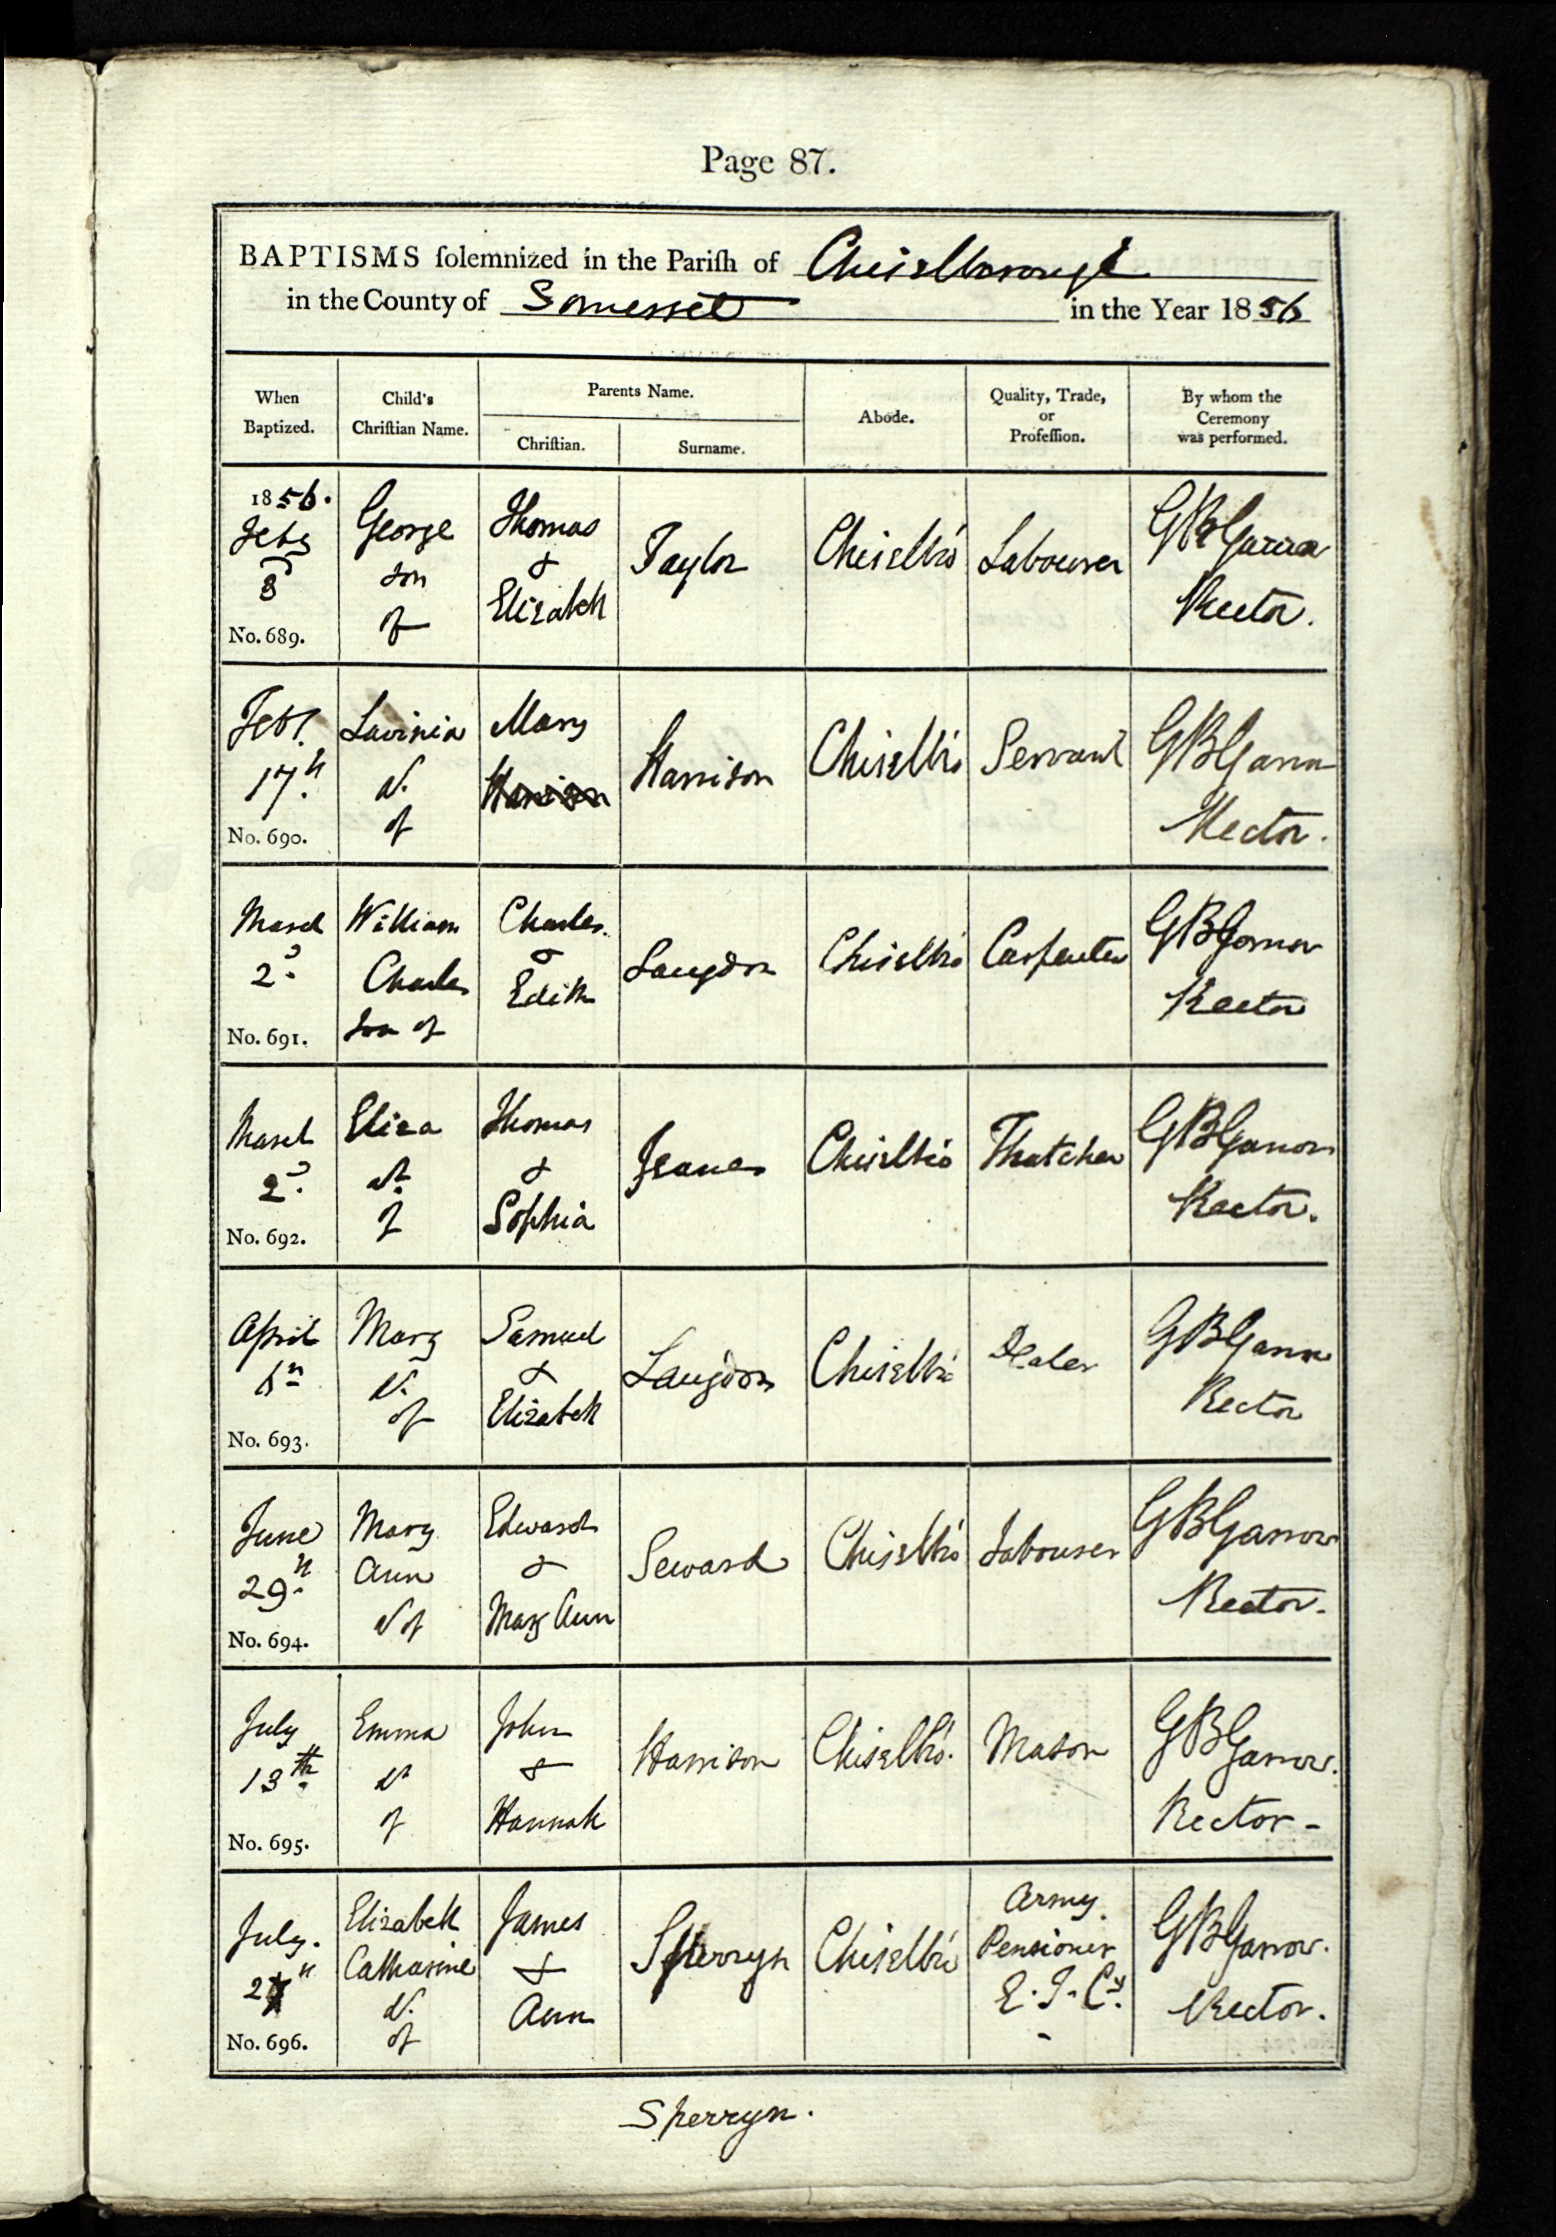 Page 87.
BAPTISMS ſolemnized in the Pariſh of Chiselborough
in the County of Somerset in the Year 1856
When
Baptized.
Child's
Chriſtian Name.
Parents Name.
Chriſtian.
Surname.
Abode.
Quality, Trade,
or
Profeſſion.
By whom the
Ceremony
was performed.
1856.
Feby
3
No. 689.
George
son
of
Thomas
&
Elizabeth
Taylor
Chiselbro
Labourer
GBGarrow
Rector.
Feby.
17th
No. 690.
Lavinia
d.
of
Mary
Harrison
Harrison
Chiselbro
Servant
GBGarrow
Rector.
March
2d.
No. 691.
William
Charles
son of
Charles
&
Edith
Langdon
Chiselbro
Carpenter
GBGarrow
Rector
March
2d.
No. 692.
Eliza
dr.
of
Thomas
&
Sophia
Jeanes
Chiselbro
Thatcher
GBGarrow
Rector.
April
6th
No. 693.
Mary
d.
of
Samuel
&
Elizabeth
Langdon
Chiselbro
Dealer
GBGarrow
Rector
June
29th
No. 694.
Mary
Ann
d of
Edward
&
Mary Ann
Seward
Chiselbro
Labourer
GBGarrow
Rector.
July
13th
No. 695.
Emma
dr
of
John
&
Hannah
Harrison
Chiselbro.
Mason
GBGarrow.
Rector -
July.
27th
No. 696.
Elizabeth
Catharine
d.
of
James
&
Ann
Sperryn
Chiselbro
Army
Pensioner
E. I. Cy.
GBGarrow.
Rector.
Sperryn.